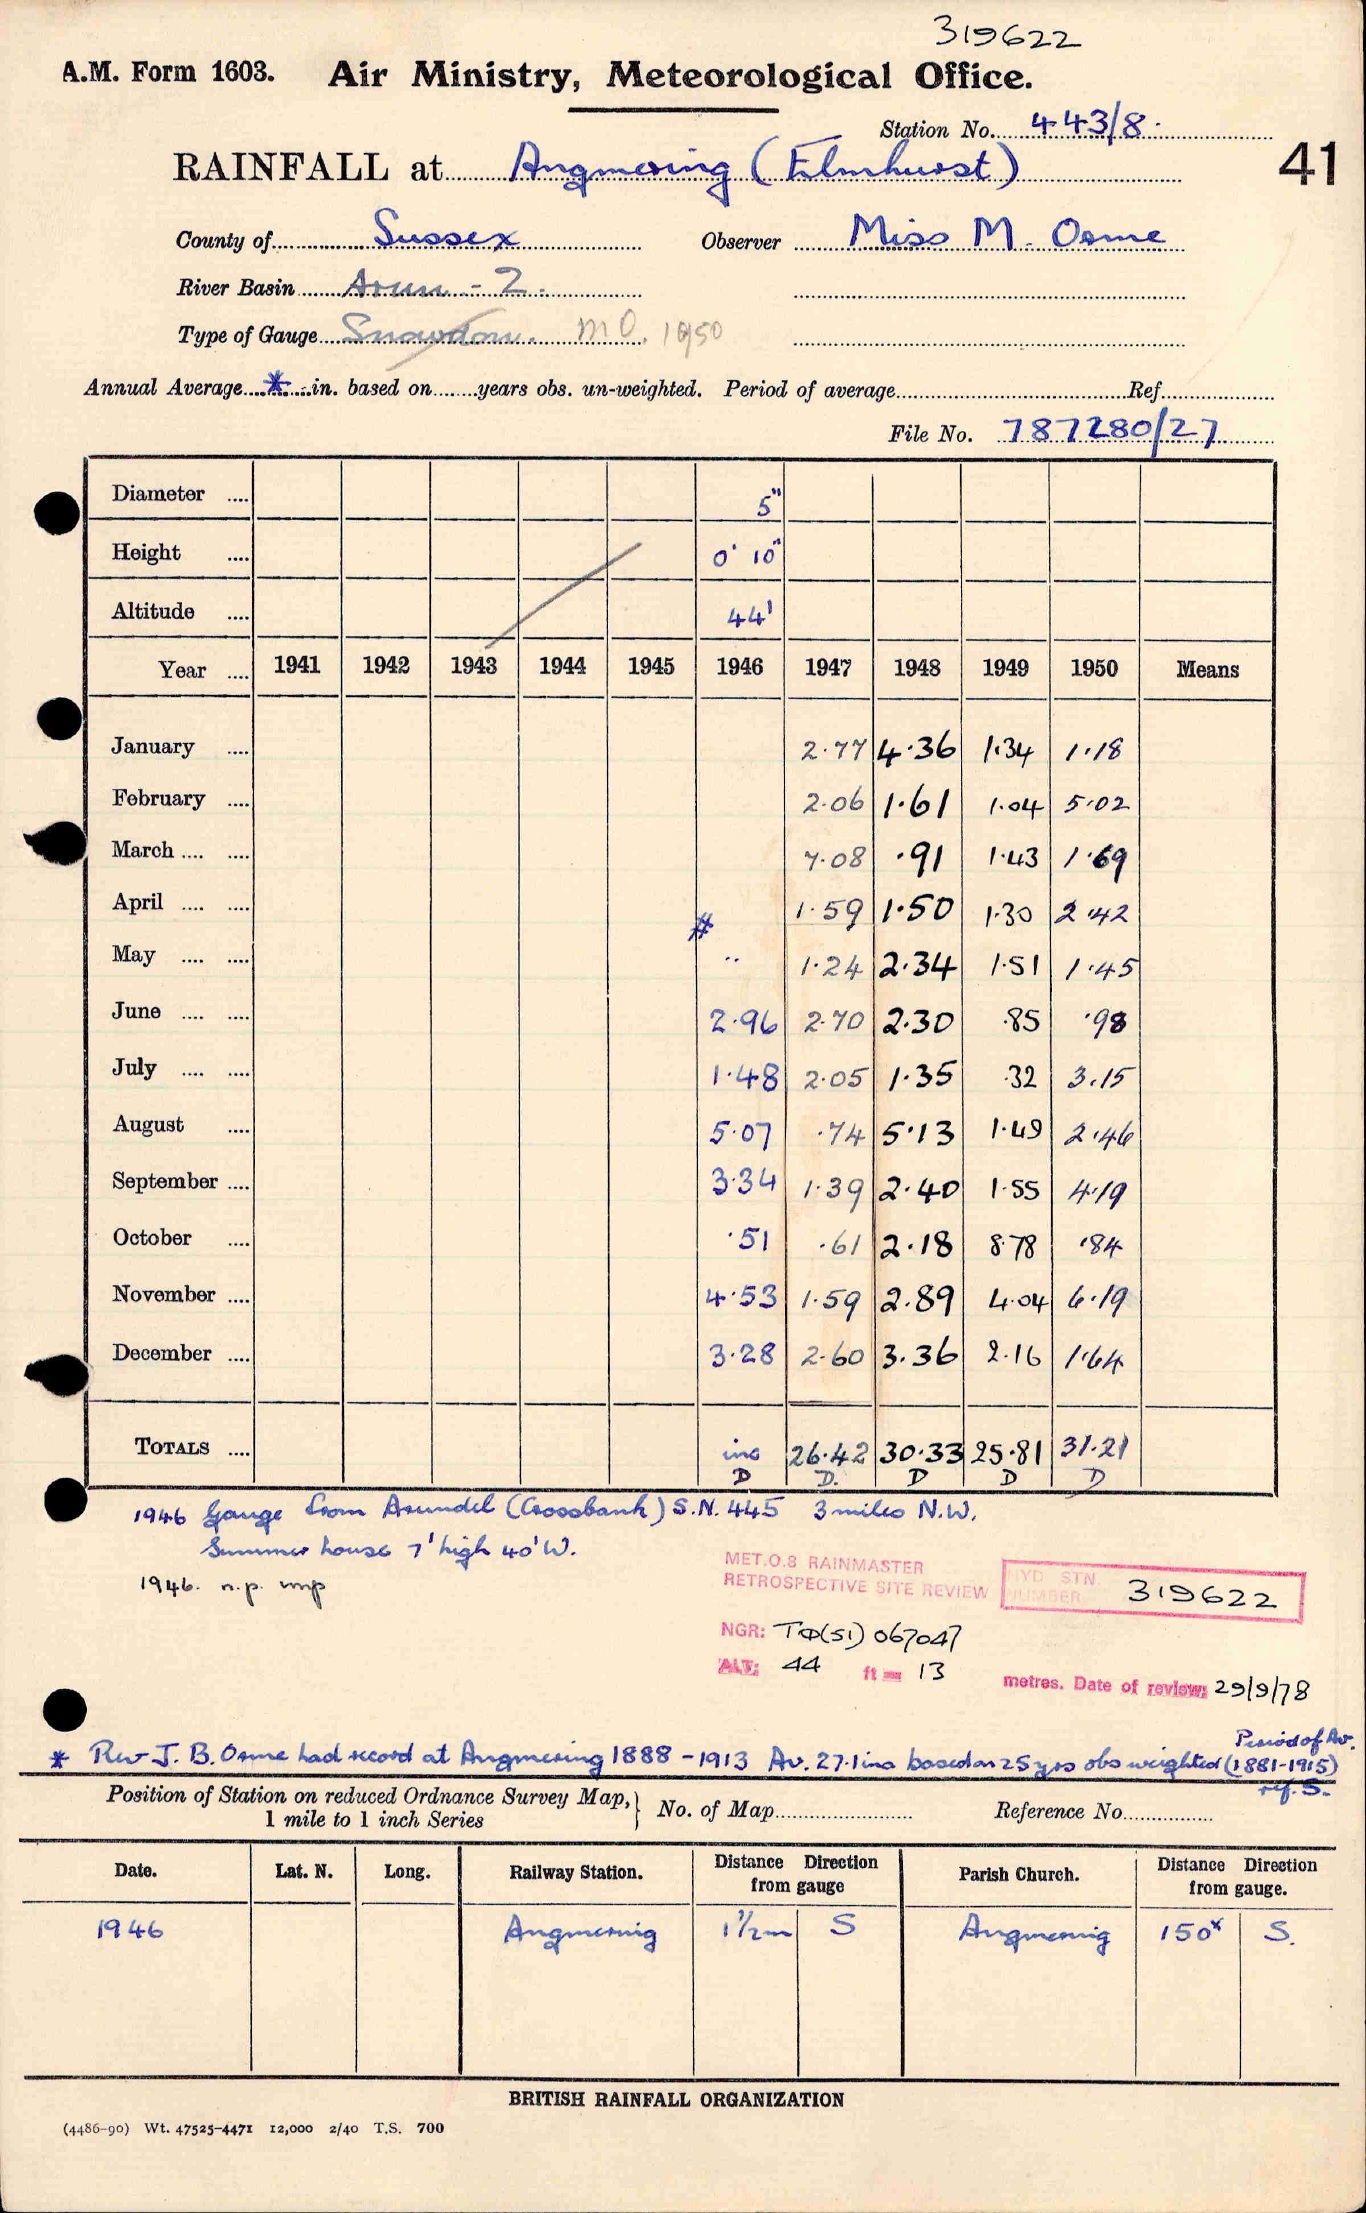 319622
A.M. Form 1603. Air Ministry, Meteorological Office.
Station No. 443/8.
41
RAINFALL at Angmering (Elmhurst)
County of Sussex Observer Miss M. Orme
River Basin Arun - 2.
Type of Gauge Snowdon. M.O. 1950
Annual Average * in. based on years obs. un-weighted. Period of average Ref.
File No. 787280/27
Diameter .... 5"
Height .... 0' 10"
Altitude .... 44'
Year .... 1941 1942 1943 1944 1945 1946 1947 1948 1949 1950 Means
January .... 2.77 4.36 1.34 1.18
February .... 2.06 1.61 1.04 5.02
March .... .... 7.08 .91 1.43 1.69
April .... .... 1.59 1.50 1.30 2.42
#
May .... .... .. 1.24 2.34 1.51 1.45
June .... .... 2.96 2.70 2.30 .85 .98
July .... .... 1.48 2.05 1.35 .32 3.15
August .... 5.07 .74 5.13 1.49 2.46
September .... 3.34 1.39 2.40 1.55 4.19
October .... .51 .61 2.18 8.78 .84
November .... 4.53 1.59 2.89 4.04 6.19
December .... 3.28 2.60 3.36 2.16 1.64
TOTALS .... inc 26.42 30.33 25.81 31.21
D D. D D D
1946 Gauge from Arundel (Crossbank) S.N. 445 3 miles N.W.
Summer house 7' high 40' W.
1946. n.p. imp
MET.O.8 RAINMASTER
RETROSPECTIVE SITE REVIEW
HYD STN. NUMBER 319622
NGR: TQ(51) 067047
ALT: 44 ft = 13 metres. Date of review: 29/9/78
* Rev J. B. Orme had record at Angmering 1888 - 1913 Av. 27.1 ins based on 25 yrs obs weighted (1881-1915)
Period of Av.
ref. S.
Position of Station on reduced Ordnance Survey Map, 1 mile to 1 inch Series } No. of Map Reference No.
Date. Lat. N. Long. Railway Station. Distance Direction from gauge Parish Church. Distance Direction from gauge.
1946 Angmering 1½m S Angmering 150x S.
BRITISH RAINFALL ORGANIZATION
(4486-90) Wt. 47525-4471 12,000 2/40 T.S. 700